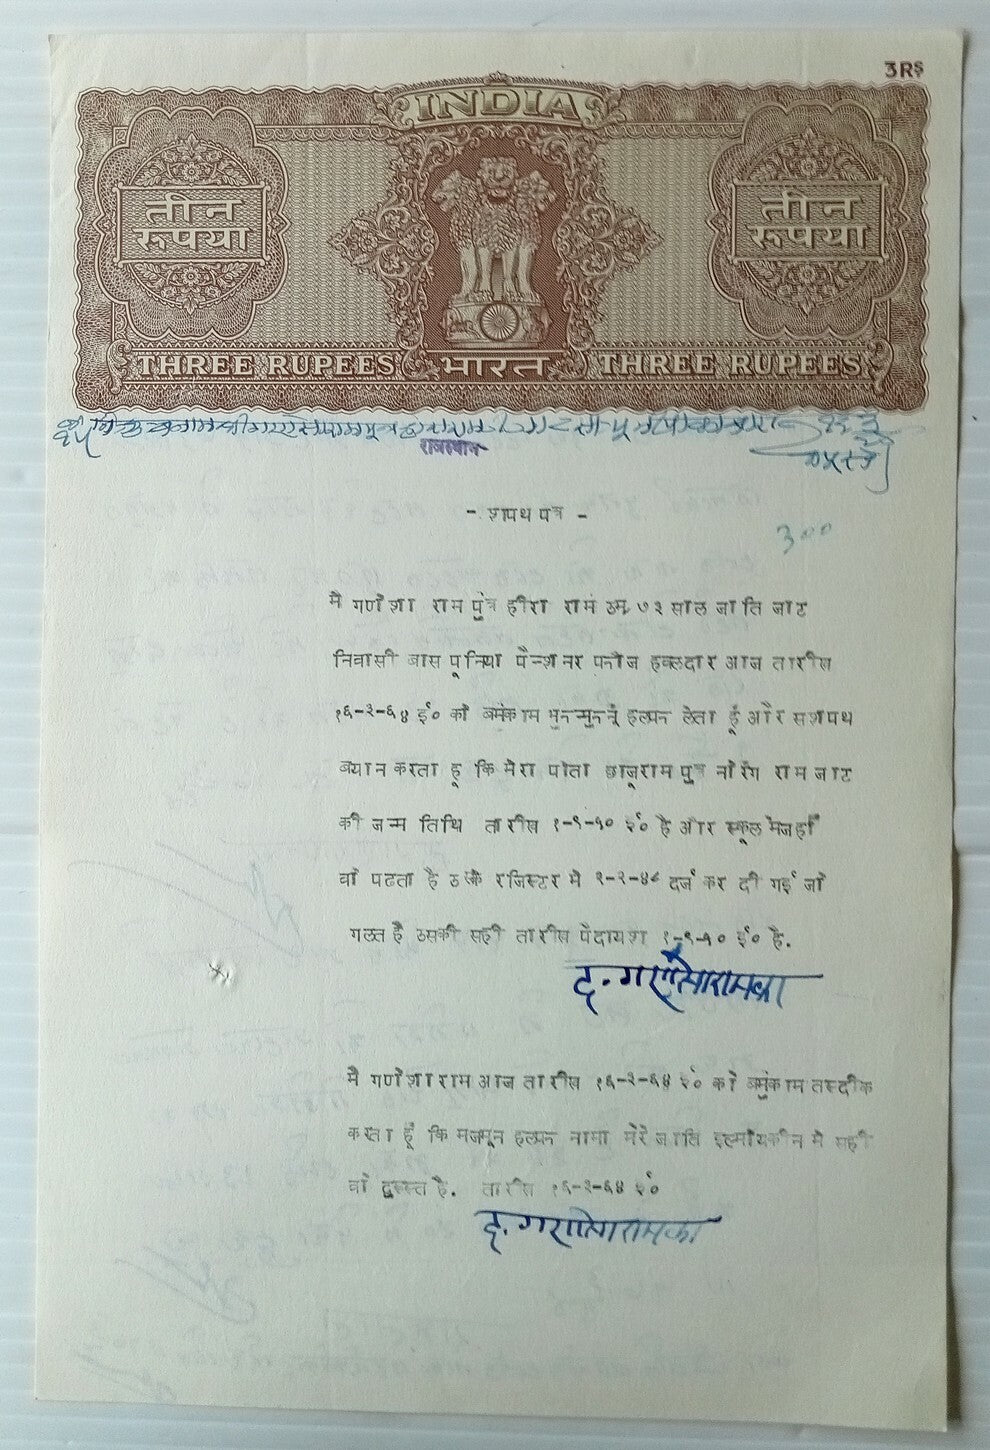 3RS
INDIA
तीन
रूपया
तीन
रूपया
THREE RUPEES
भारत
THREE RUPEES
राजस्थान
-. शपथ पत्र -
300
मै गणेशा राम पुत्र हीरा राम उम्र ७३ साल जाति जाट
निवासी बास पूनिया पैन्शनर फौज हवलदार आज तारीख
१६-३-६४ ई० को बमुकाम झुन्झुनूं हल्फन लेता हूं और सशपथ
बयान करता हू कि मेरा पोता छाजूराम पुत्र नोरंग राम जाट
की जन्म तिथि तारीख १-९-५० ई० है और स्कूल मे जहां
वो पढता है उसके रजिस्टर मे दर्ज कर दी गई जो
गलत है उसकी सही तारीख पैदायश १-९-५० ई० है.
द. गणेसाराम का
मै गणेशाराम आज तारीख १६-३-६४ ई० को बमुकाम तस्दीक
करता हूं कि मजमून हल्फन नामा मेरे जाति इल्मोयकीन मे सही
वो दुरुस्त है. तारीख १६-३-६४ ई०
द. गणेसाराम का